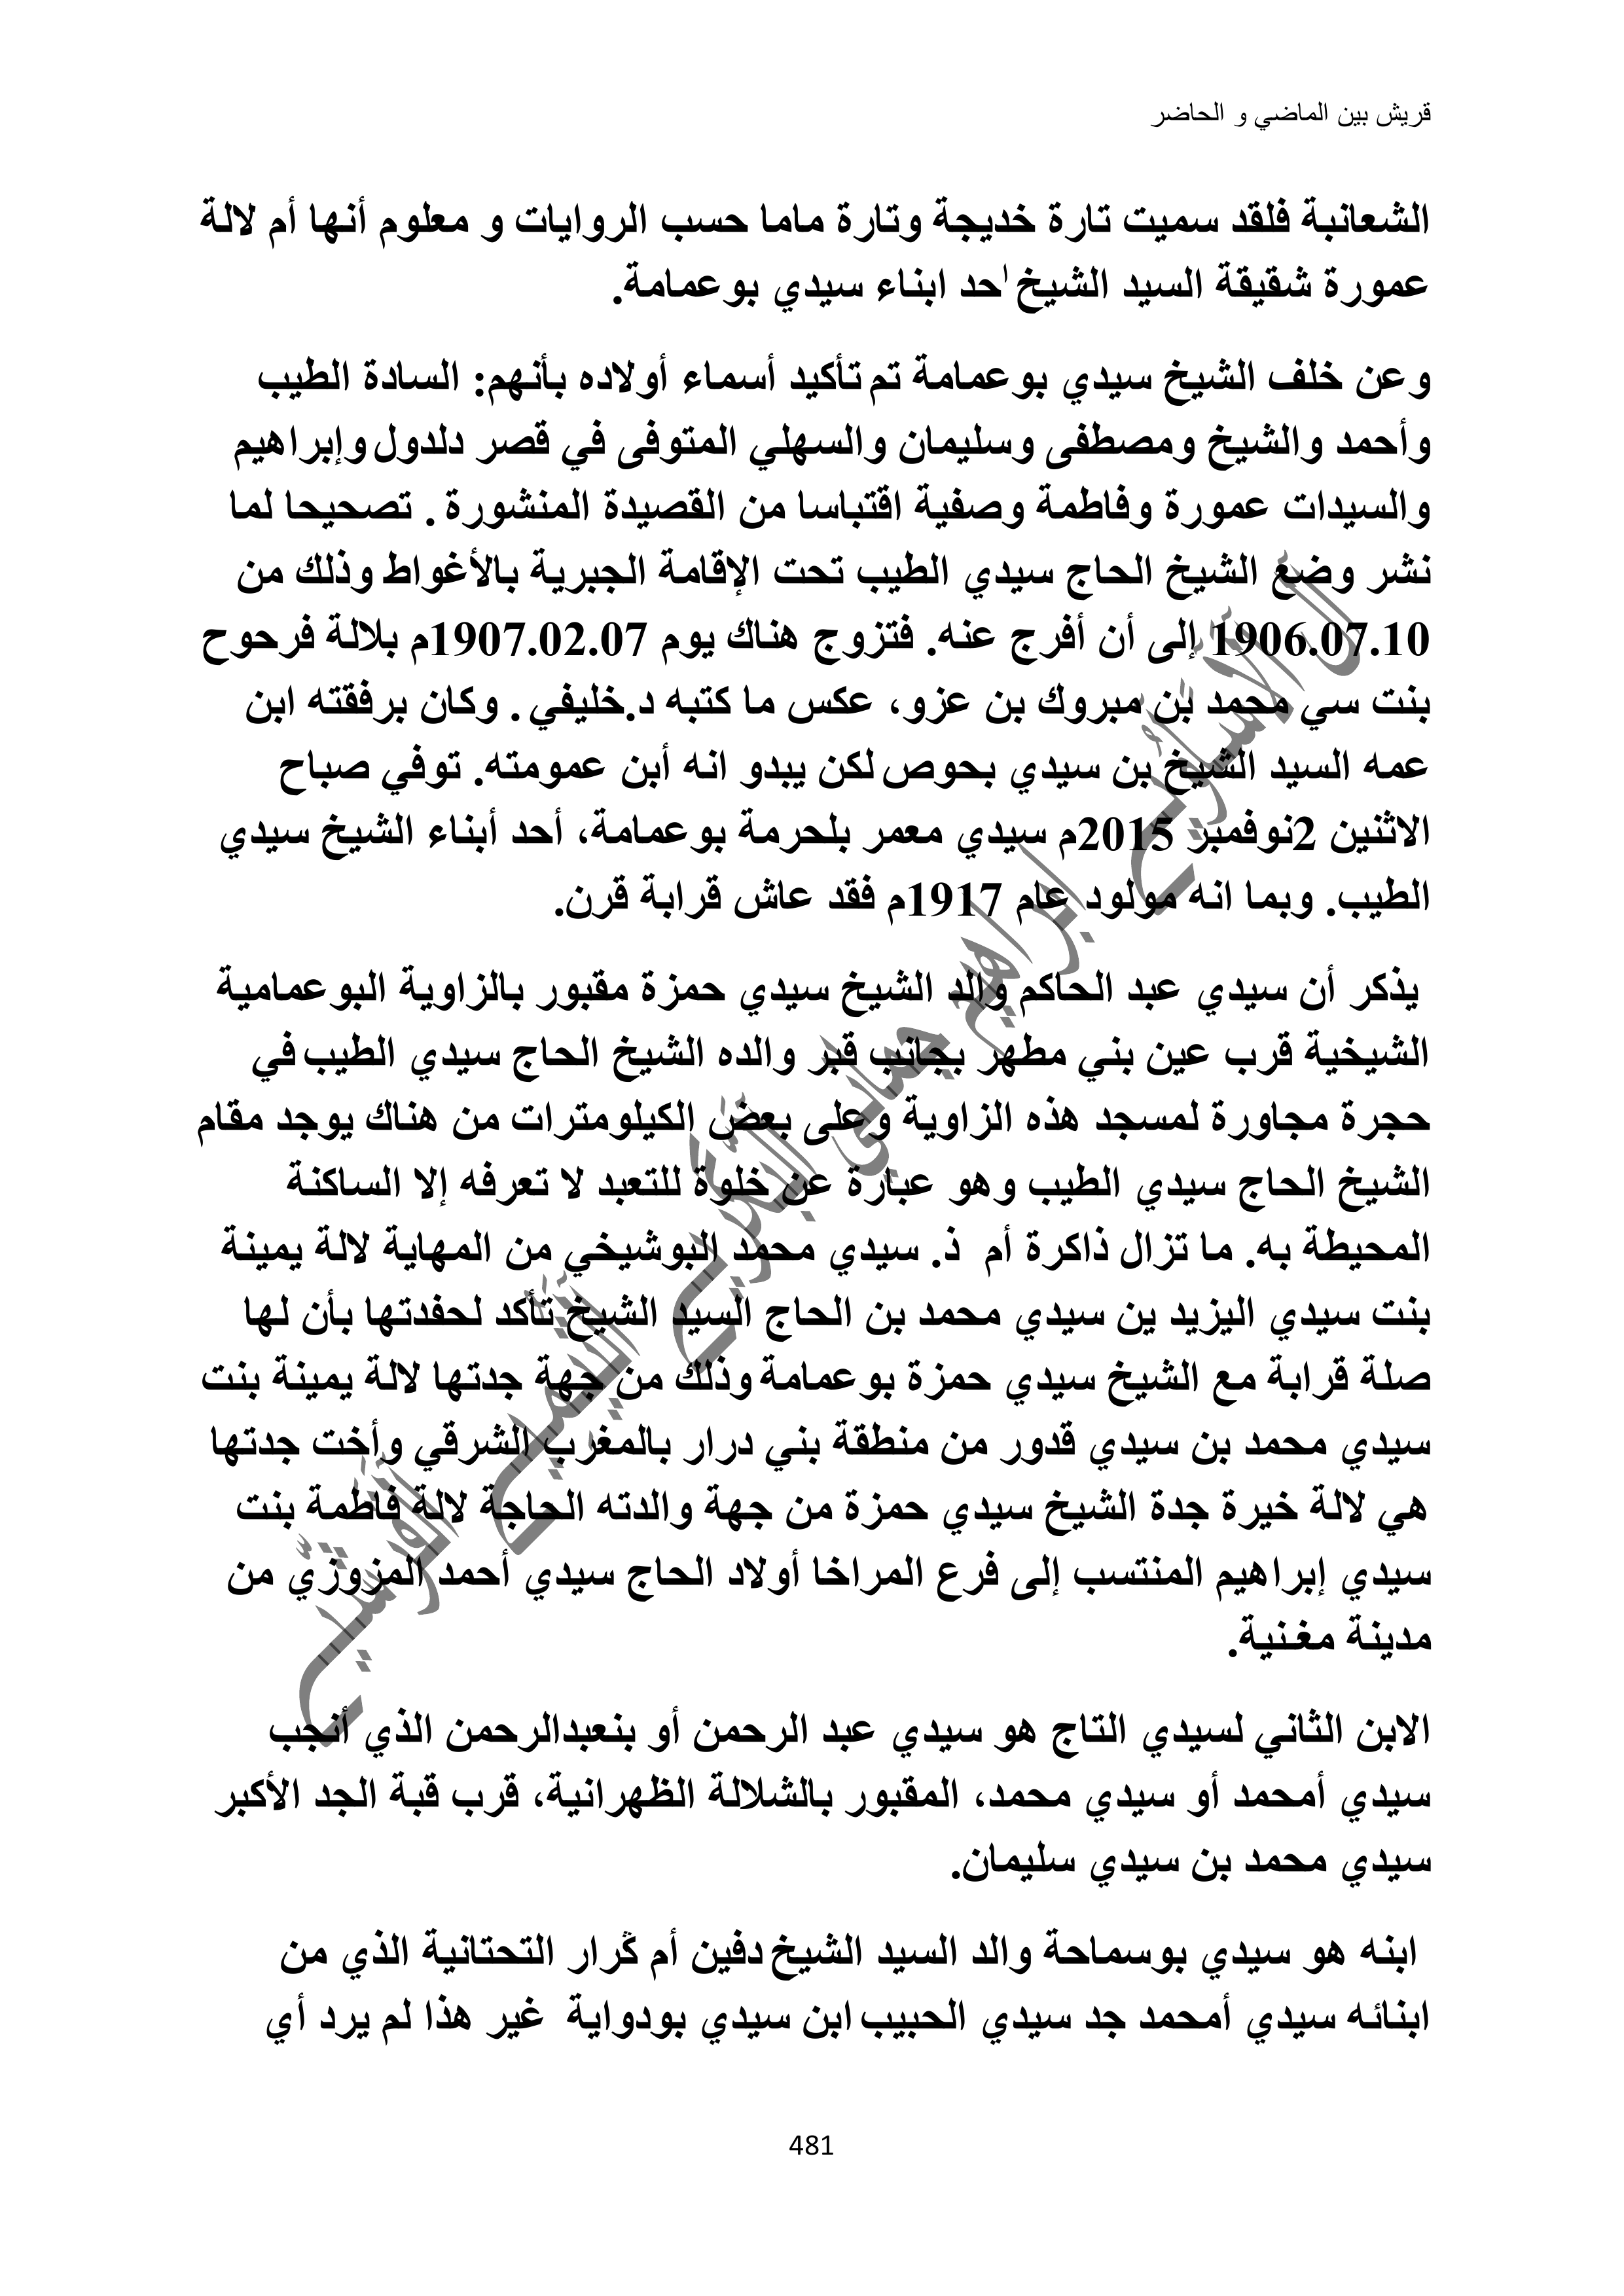 قريش بين الماضي و الحاضر
الشعانبة فلقد سميت تارة خديجة وتارة ماما حسب الروايات و معلوم أنها أم لالة
عمورة شقيقة السيد الشيخ احد ابناء سيدي بوعمامة.
وعن خلف الشيخ سيدي بوعمامة تم تأكيد أسماء أولاده بأنهم: السادة الطيب
وأحمد والشيخ ومصطفى وسليمان والسهلي المتوفى في قصر دلدول وإبراهيم
والسيدات عمورة وفاطمة وصفية اقتباسا من القصيدة المنشورة . تصحيحا لما
نشر وضع الشيخ الحاج سيدي الطيب تحت الإقامة الجبرية بالأغواط وذلك من
1906.07.10 إلى أن أفرج عنه. فتزوج هناك يوم 1907.02.07م بلالة فرحوح
بنت سي محمد بن مبروك بن عزو، عكس ما كتبه د.خليفي . وكان برفقته ابن
عمه السيد الشيخ بن سيدي بحوص لكن يبدو انه أبن عمومته. توفي صباح
الاثنين 2نوفمبر 2015م سيدي معمر بلحرمة بوعمامة، أحد أبناء الشيخ سيدي
الطيب. وبما انه مولود عام 1917م فقد عاش قرابة قرن.
يذكر أن سيدي عبد الحاكم والد الشيخ سيدي حمزة مقبور بالزاوية البوعمامية
الشيخية قرب عين بني مطهر بجانب قبر والده الشيخ الحاج سيدي الطيب في
حجرة مجاورة لمسجد هذه الزاوية وعلى بعض الكيلومترات من هناك يوجد مقام
الشيخ الحاج سيدي الطيب وهو عبارة عن خلوة للتعبد لا تعرفه إلا الساكنة
المحيطة به. ما تزال ذاكرة أم ذ. سيدي محمد البوشيخي من المهاية لالة يمينة
بنت سيدي اليزيد ين سيدي محمد بن الحاج السيد الشيخ تأكد لحفدتها بأن لها
صلة قرابة مع الشيخ سيدي حمزة بوعمامة وذلك من جهة جدتها لالة يمينة بنت
سيدي محمد بن سيدي قدور من منطقة بني درار بالمغرب الشرقي وأخت جدتها
هي لالة خيرة جدة الشيخ سيدي حمزة من جهة والدته الحاجة لالة فاطمة بنت
سيدي إبراهيم المنتسب إلى فرع المراخا أولاد الحاج سيدي أحمد المزوزي من
مدينة مغنية.
الابن الثاني لسيدي التاج هو سيدي عبد الرحمن أو بنعبدالرحمن الذي أنجب
سيدي أمحمد أو سيدي محمد، المقبور بالشلالة الظهرانية، قرب قبة الجد الأكبر
سيدي محمد بن سيدي سليمان.
ابنه هو سيدي بوسماحة والد السيد الشيخ دفين أم ڭرار التحتانية الذي من
ابنائه سيدي أمحمد جد سيدي الحبيب ابن سيدي بودواية غير هذا لم يرد أي
481